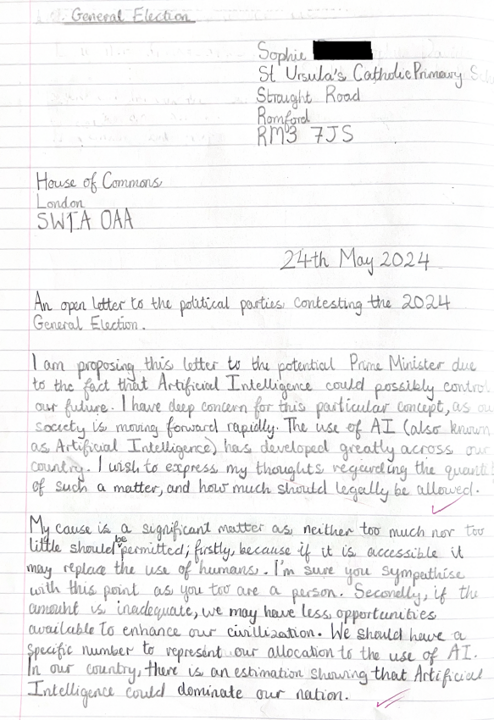 General Election
Sophie
St Ursula's Catholic Primary
Straight Road
Romford
RM3 7JS
House of Commons
London
SW1A 0AA
24th May 2024
An open letter to the political parties contesting the 2024
General Election.
I am proposing this letter to the potential Prime Minister due
to the fact that Artificial Intelligence could possibly control
our future. I have deep concern for this particular concept, as our
society is moving forward rapidly. The use of AI (also known
as Artificial Intelligence) has developed greatly across our
country. I wish to express my thoughts regarding the
of such a matter, and how much should legally be allowed.
My cause is a significant matter as neither too much nor too
little should be permitted; firstly, because if it is accessible it
may replace the use of humans. I'm sure you sympathise
with this point as you too are a person. Secondly, if the
amount is inadequate, we may have less opportunities
available to enhance our civilization. We should have a
specific number to represent our allocation to the use of AI.
In our country, there is an estimation showing that Artificial
Intelligence could dominate our nation.